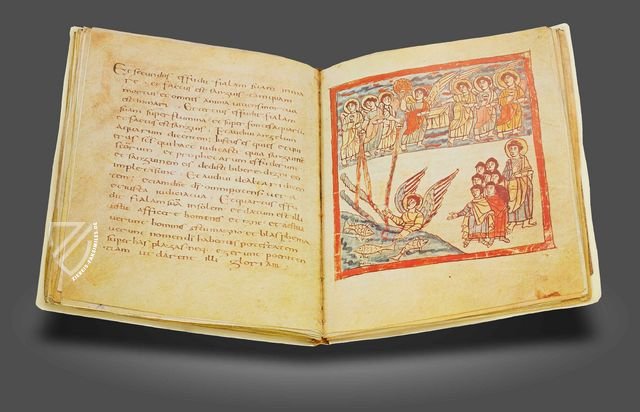 Et secundus effudit fialam suam in ma
re et factus est sanguis tamquam
mortui et omnis anima vivens mortua
est in mari Et tertius effudit fialam
suam super flumina et super fontes aquar
et factus est sanguis Et audivi angelum
aquarum dicentem Iustus es qui es et qui
eras scs qui haec iudicasti quia sanguinē
scorum et prophetarum effuderunt
et sanguinem eis dedisti bibere digni
et audivi altare dicen
tem etiam dne ds omnipotens vera
et iusta iudicia tua Et quartus effu
dit fialam suā in solem et datum est illi
aestu afficere homines et igne et aestu
verunt homines aestu magno et blasphema
verunt nomen di habentis potestatem
super has plagas neq. egerunt poeniten
tiam ut darent illi gloriam
ZIEREIS FACSIMILES.DE